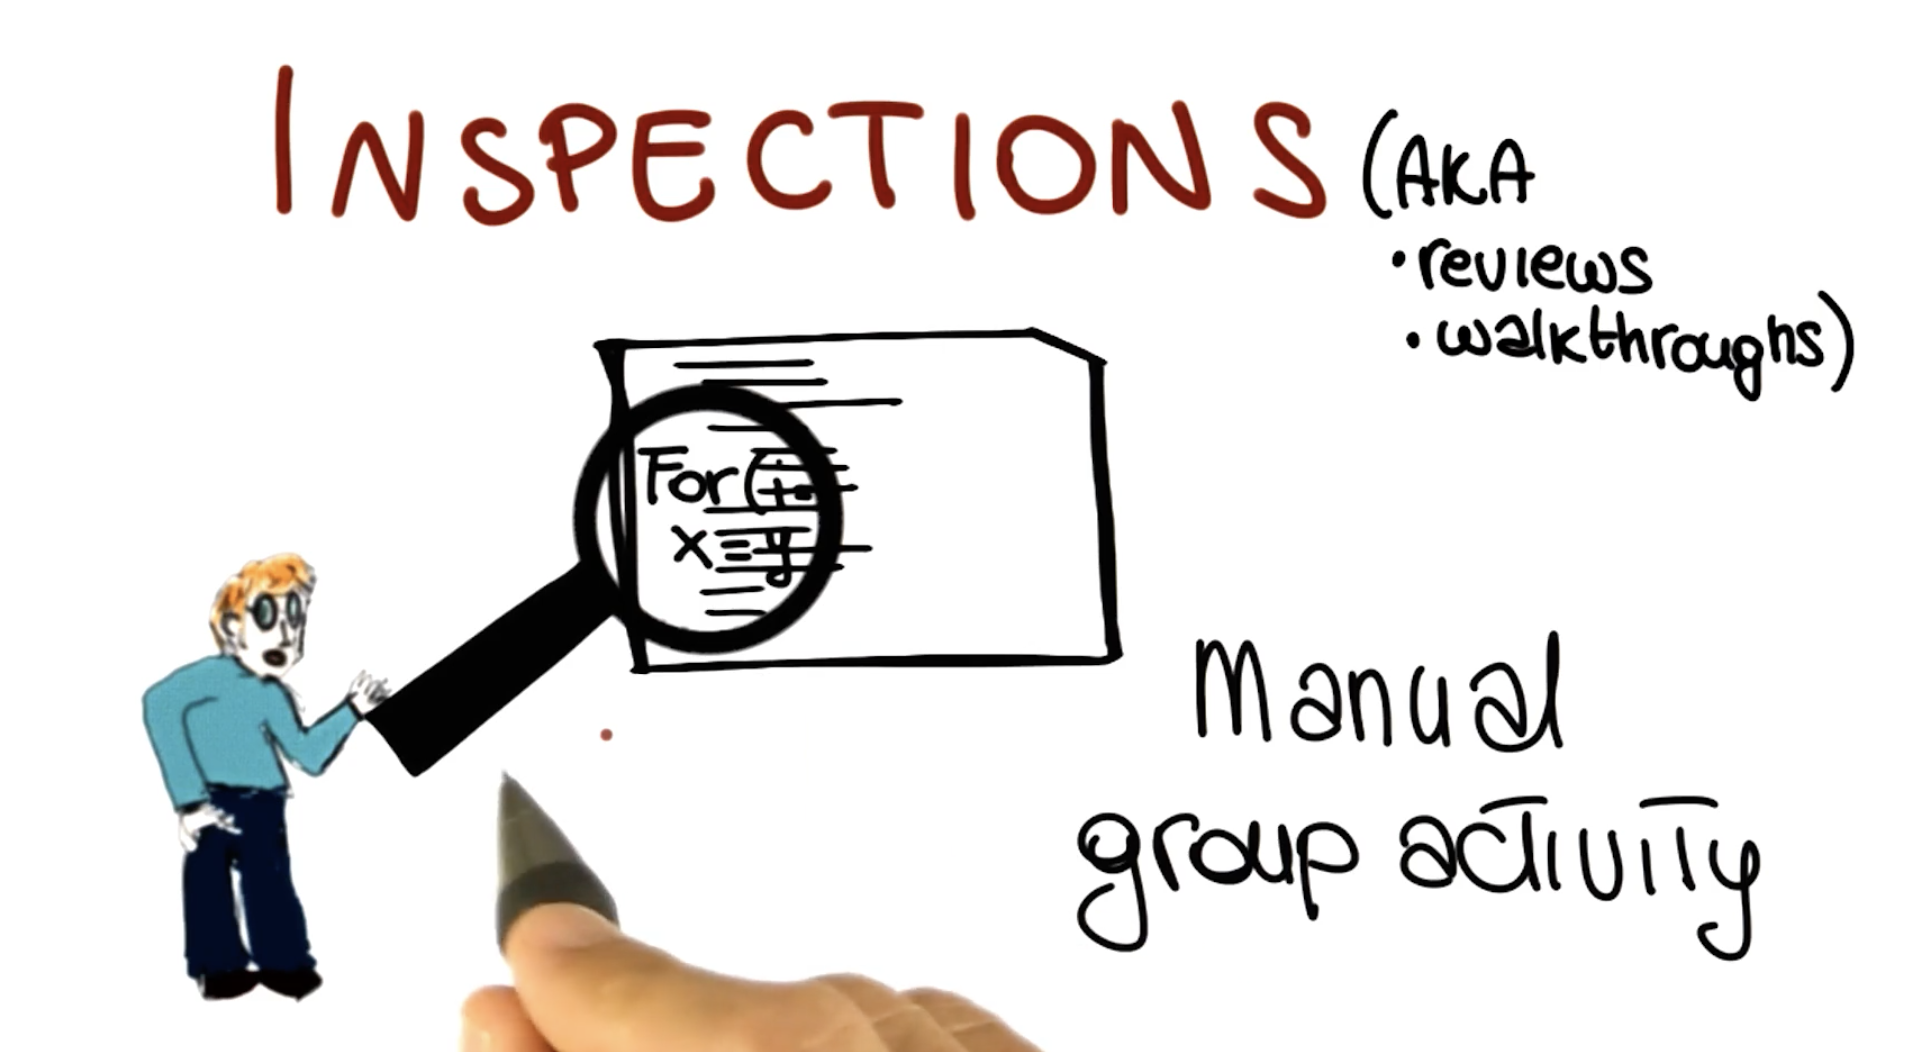 INSPECTIONS (AKA
• reviews
• walkthroughs)
For (
x = y
Manual
group activity